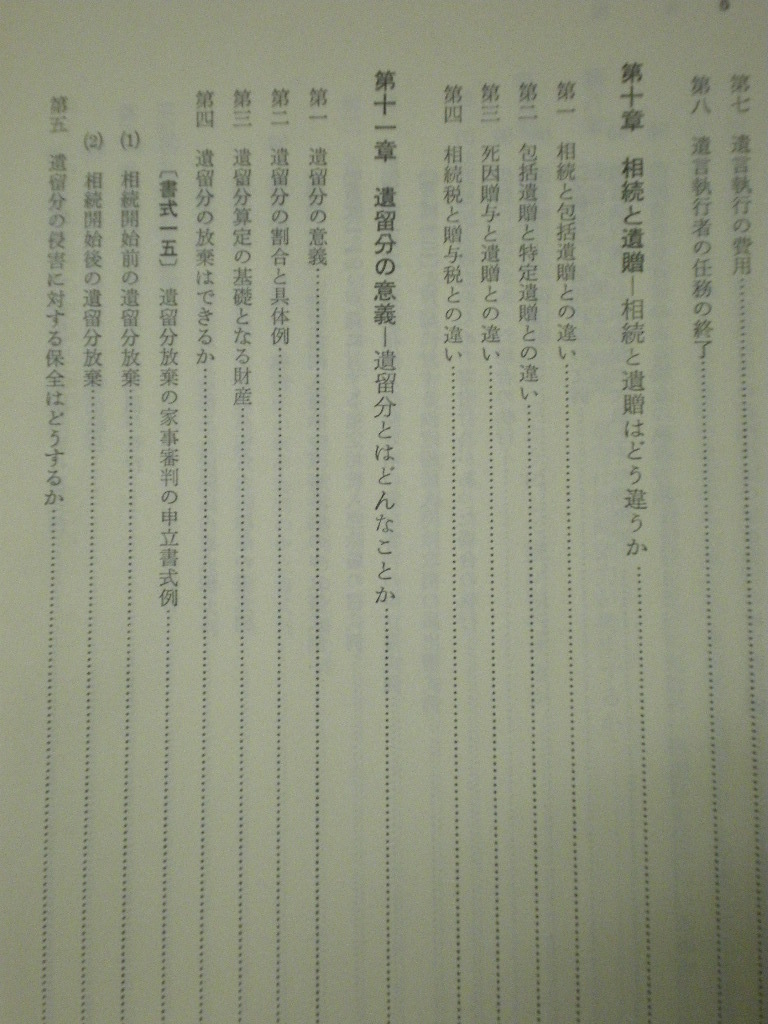 第七 遺言執行の費用
第八 遺言執行者の任務の終了
第十章 相続と遺贈―相続と遺贈はどう違うか
第一 相続と包括遺贈との違い
第二 包括遺贈と特定遺贈との違い
第三 死因贈与と遺贈との違い
第四 相続税と贈与税との違い
第十一章 遺留分の意義―遺留分とはどんなことか
第一 遺留分の意義
第二 遺留分の割合と具体例
第三 遺留分算定の基礎となる財産
第四 遺留分の放棄はできるか
〔書式一五〕 遺留分放棄の家事審判の申立書式例
(1) 相続開始前の遺留分放棄
(2) 相続開始後の遺留分放棄
第五 遺留分の侵害に対する保全はどうするか